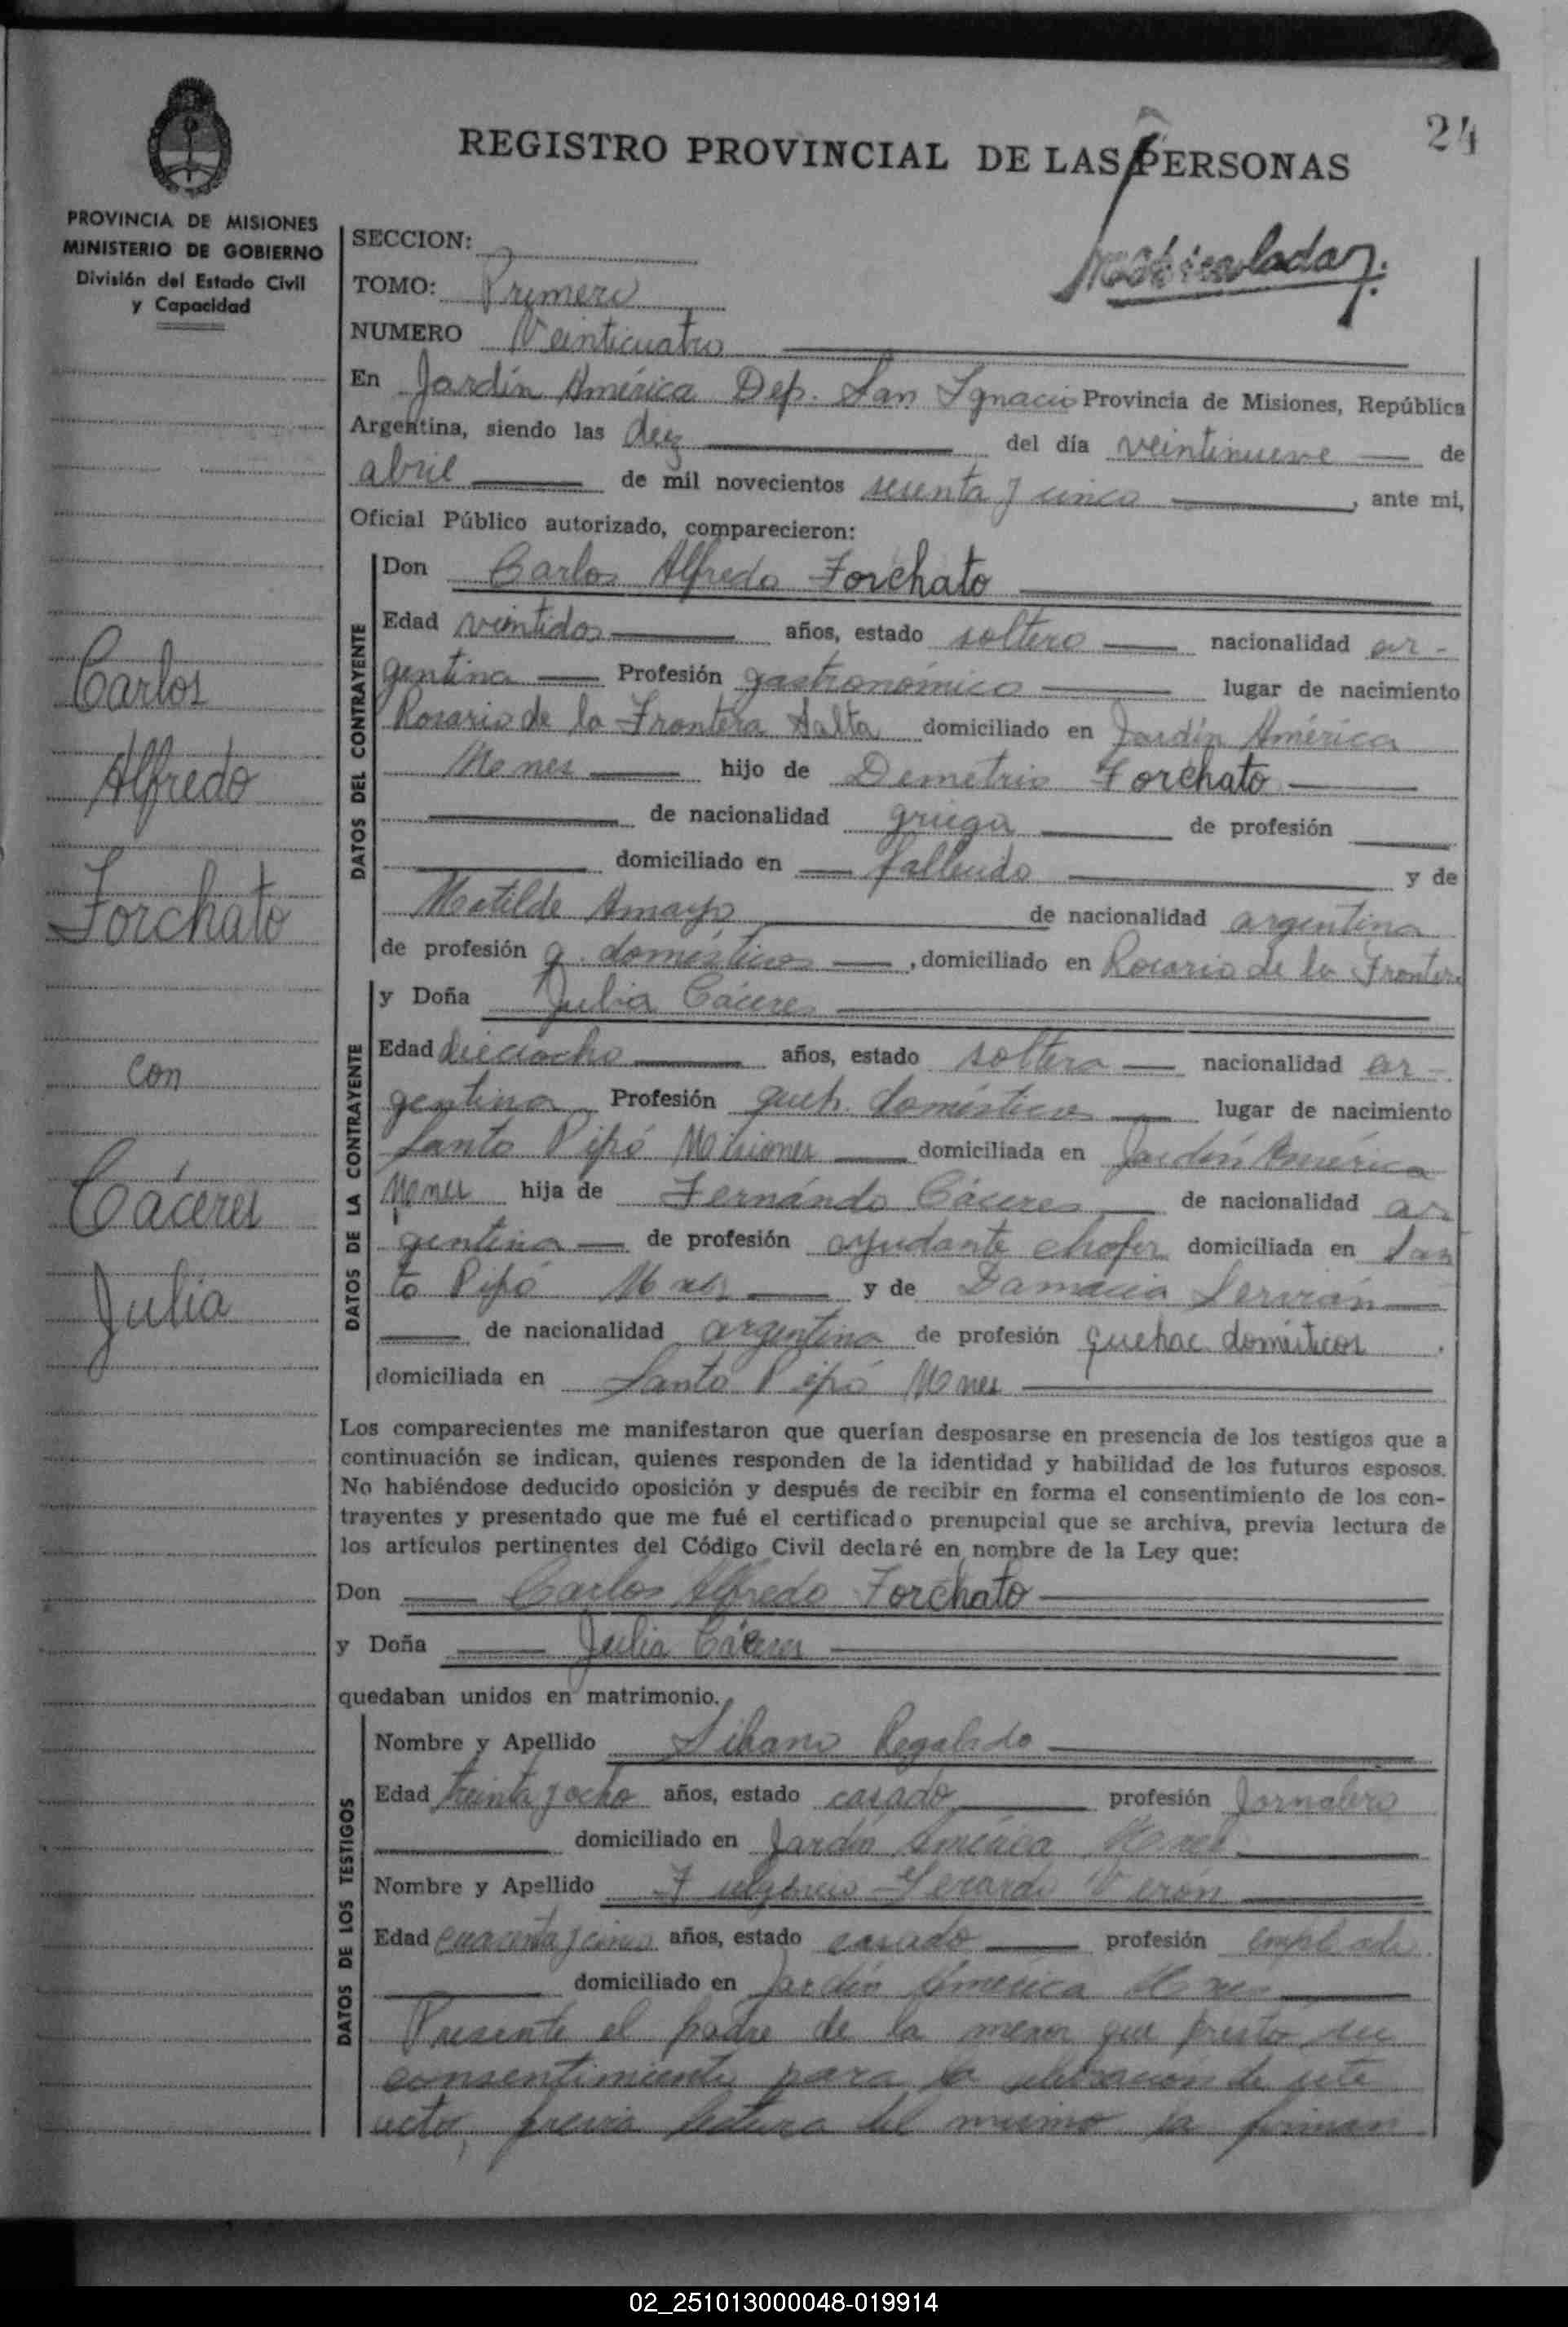 24
REGISTRO PROVINCIAL DE LAS PERSONAS
PROVINCIA DE MISIONES
MINISTERIO DE GOBIERNO
División del Estado Civil
y Capacidad
SECCION:
TOMO: Primero
NUMERO Veinticuatro
En Jardín América Dep. San Ignacio Provincia de Misiones, República
Argentina, siendo las diez del día veintinueve de
abril de mil novecientos sesenta y cinco, ante mi,
Oficial Público autorizado, comparecieron:
Carlos
Alfredo
Forchato
con
Cáceres
Julia
DATOS DEL CONTRAYENTE
Don Carlos Alfredo Forchato
Edad veintidos años, estado soltero nacionalidad ar-
gentina Profesión gastronómico lugar de nacimiento
Rosario de la Frontera Salta domiciliado en Jardín América
Mones hijo de Demetrio Forchato
de nacionalidad griega de profesión
domiciliado en fallecido y de
Matilde Amaya de nacionalidad argentina
de profesión q. domésticos, domiciliado en Rosario de la Frontera
DATOS DE LA CONTRAYENTE
y Doña Julia Cáceres
Edad dieciocho años, estado soltera nacionalidad ar-
gentina Profesión queh. domésticos lugar de nacimiento
Santo Pipó Misiones domiciliada en Jardín América
Mones hija de Fernándo Cáceres de nacionalidad ar
gentina de profesión ayudante chofer domiciliada en San
to Pipó Mnes y de Damacia Servián
de nacionalidad argentina de profesión quehac domésticos.
domiciliada en Santo Pipó Mones
Los comparecientes me manifestaron que querían desposarse en presencia de los testigos que a
continuación se indican, quienes responden de la identidad y habilidad de los futuros esposos.
No habiéndose deducido oposición y después de recibir en forma el consentimiento de los con-
trayentes y presentado que me fué el certificado prenupcial que se archiva, previa lectura de
los artículos pertinentes del Código Civil declaré en nombre de la Ley que:
Don Carlos Alfredo Forchato
y Doña Julia Cáceres
quedaban unidos en matrimonio.
DATOS DE LOS TESTIGOS
Nombre y Apellido Regalado
Edad treinta y ocho años, estado casado profesión Jornalero
domiciliado en Jardín América Mones
Nombre y Apellido Fulgencio Gerardo Verón
Edad cuarenta y cinco años, estado casado profesión empleado.
domiciliado en Jardín América Mones
Presente el padre de la menor que prestó su
consentimiento para la celebración de este
acto, previa lectura del mismo la firman
02_251013000048-019914